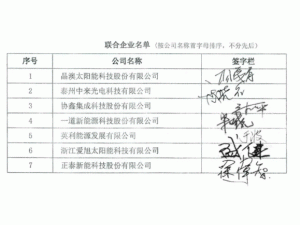 联合企业名单（按公司名称首字母排序，不分先后）
序号 公司名称 签字栏
1 晶澳太阳能科技股份有限公司
2 泰州中来光电科技有限公司
3 协鑫集成科技股份有限公司
4 一道新能源科技股份有限公司
5 英利能源发展有限公司
6 浙江爱旭太阳能科技有限公司
7 正泰新能科技股份有限公司